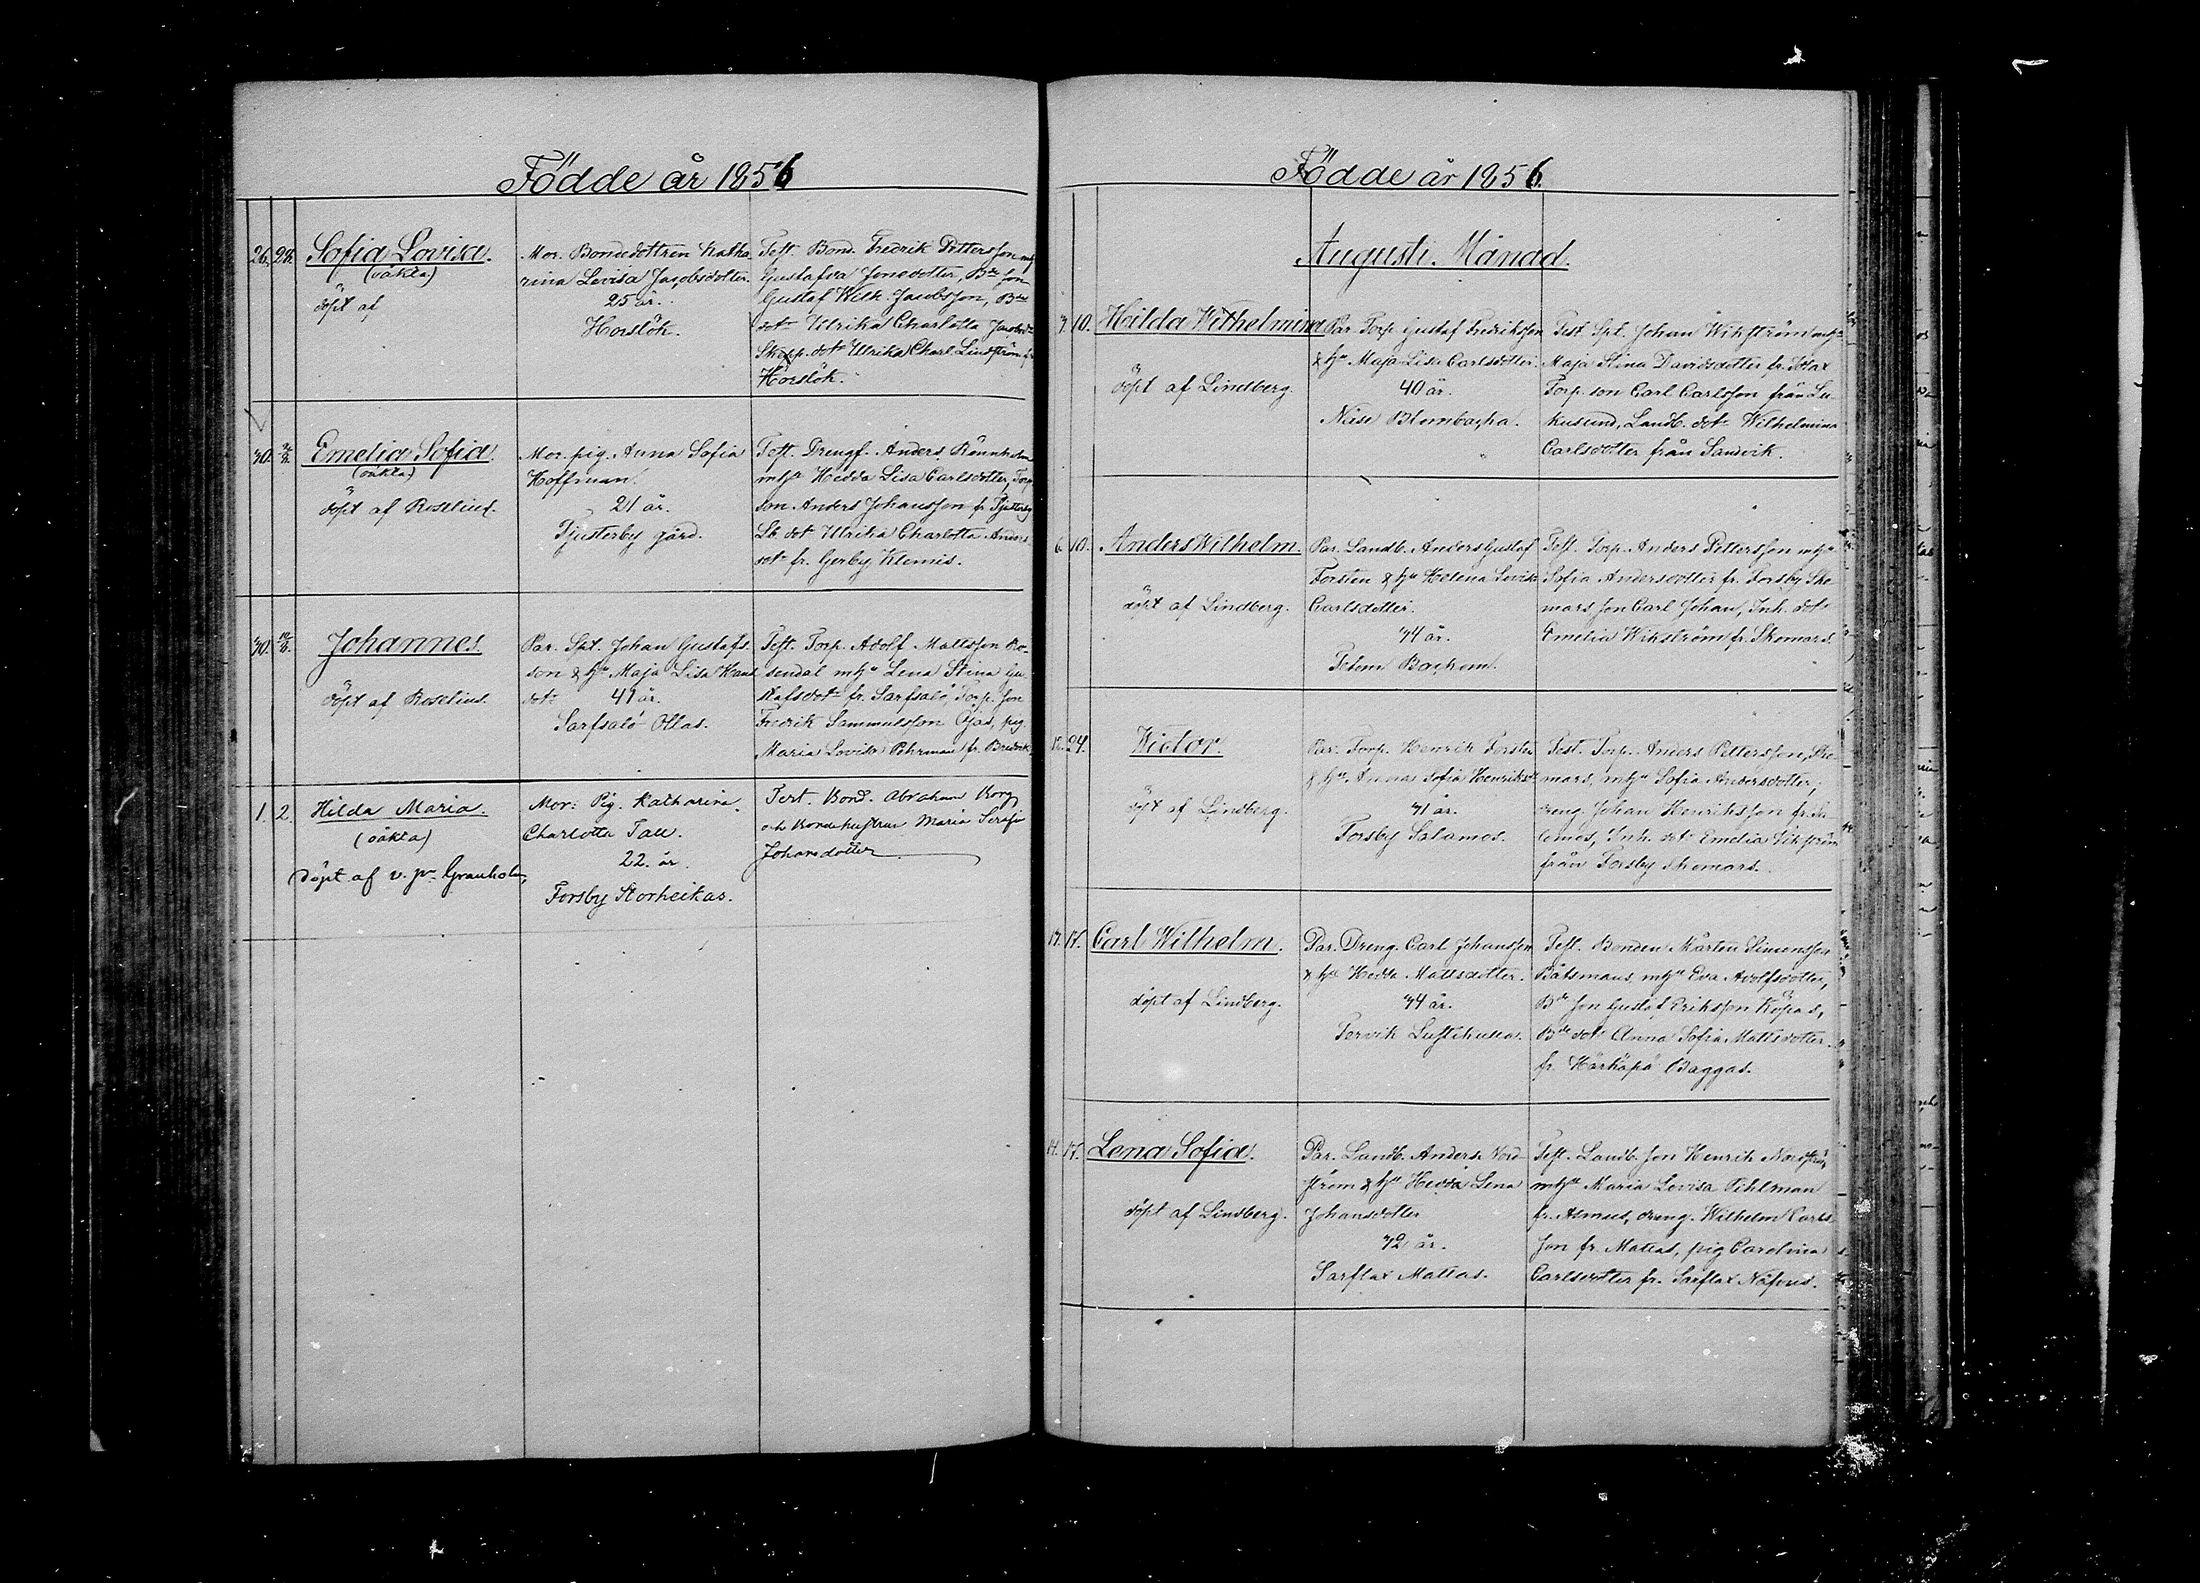 Födde år 1856
26. 28. Sofia Lovisa.
(oäkta)
döpt af
Mor. Bondedottren Katha
rina Lovisa Jacobsdotter.
25 år.
Horslök.
Test. Bond. Fredrik Pettersson
Gustafva Jonsdotter, Bde son
Gustaf Wilh. Jacobsson, Bde
dotr Ulrika Charlotta
Skepp. dotr Ulrika Charl. Lindström fr
Horslök.
30. Emelia Sofia.
(oäkta)
döpt af Roselius.
Mor. pig. Anna Sofia
Hoffman.
21 år.
Tjusterby gård.
Test. Drengf. Anders Rönnholm
mhu Hedda Lisa Carlsdotter, Torp
son Anders Johansson fr Tjusterby
Lb. dotr Ulrika Charlotta Anders
dotr fr. Gerby Klemis.
30. Johannes.
döpt af Roselius.
Par. Spt. Johan Gustafs
son & hu Maja Lisa Hans
dotr 41 år.
Sarfsalö Ollas.
Test. Torp. Adolf Mattsson Ro-
sendal mhu Lena Stina Gu
stafsdotr fr. Sarfsalö, Torp. son
Fredrik Sammuelsson Öjas, pig.
Maria Lovisa Öhrman fr.
1. 2. Hilda Maria.
(oäkta)
döpt af v. pr Granholm,
Mor: Pig. Katharina
Charlotta Tall.
22. år.
Forsby Storheikas.
Test. Bond. Abraham Borg
och Bondehustrun Maria Serafi
Johansdotter
Födde år 1856.
Augusti Månad.
3. 10. Hilda Wilhelmina
döpt af Lindberg.
Par. Torp. Gustaf Fredriksson
& hu Maja Lisa Carlsdotter.
40 år.
Näse Blombacka.
Test. Spt. Johan Wikström mhu
Maja Stina Davidsdotter fr.
Torp. son Carl Carlsson från Lu
kusund, Landb. dotr Wilhelmina
Carlsdotter från Sandvik.
6. 10. Anders Wilhelm.
döpt af Lindberg.
Par. Landb. Anders Gustaf
Forsten & hu Helena Lovisa
Carlsdotter.
34 år.
Tetom
Test. Torp. Anders Pettersson mhu
Sofia Andersdotter fr. Forsby Ske
mars, son Carl Johan, Inh. dotr
Emelia Wikström fr. Skomars.
12. 24. Wictor.
döpt af Lindberg.
Par. Torp. Henrik Forsten
& hu Anna Sofia Henriksdr
31 år.
Forsby Salamos.
Test. Torp. Anders Pettersson, Ske
mars, mhu Sofia Andersdotter,
dreng. Johan Henriksson fr. Sa
lomos, Inh. dotr Emelia Wikström
från Forsby Skomars.
17. Carl Wilhelm.
döpt af Lindberg.
Par. Dreng. Carl Johansson
& hu Hedda Mattsdotter.
34 år.
Tervik
Test. Bonden Mårten Simonsson
Båtsmans, mhu Eva Adolfsdotter,
Bde son Gustaf Eriksson Köpas,
Bde dotr Anna Sofia Mattsdotter
fr. Härköpä Baggas.
14. 17. Lena Sofia.
döpt af Lindberg.
Par. Landb. Anders Nord-
ström & hu Hedda Lena
Johansdotter
32 år.
Sarflax Mattas.
Test. Landb. son Henrik Nordström
mhu Maria Lovisa Pihlman
fr. Asmus, dreng. Wilhelm Carls
son fr. Mattas, pig Carolina
Carlsdotter fr. Sarflax Näfvus.